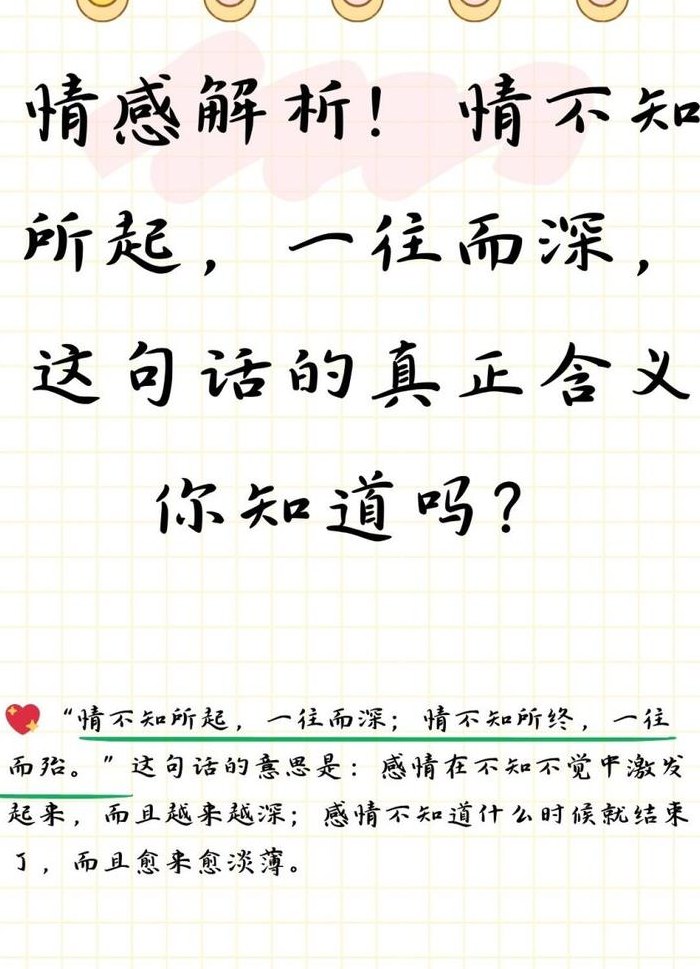 情感解析！情不知
所起，一往而深，
这句话的真正含义
你知道吗？
“情不知所起，一往而深；情不知所终，一往
而殆。”这句话的意思是：感情在不知不觉中激发
起来，而且越来越深；感情不知道什么时候就结束
了，而且愈来愈淡薄。